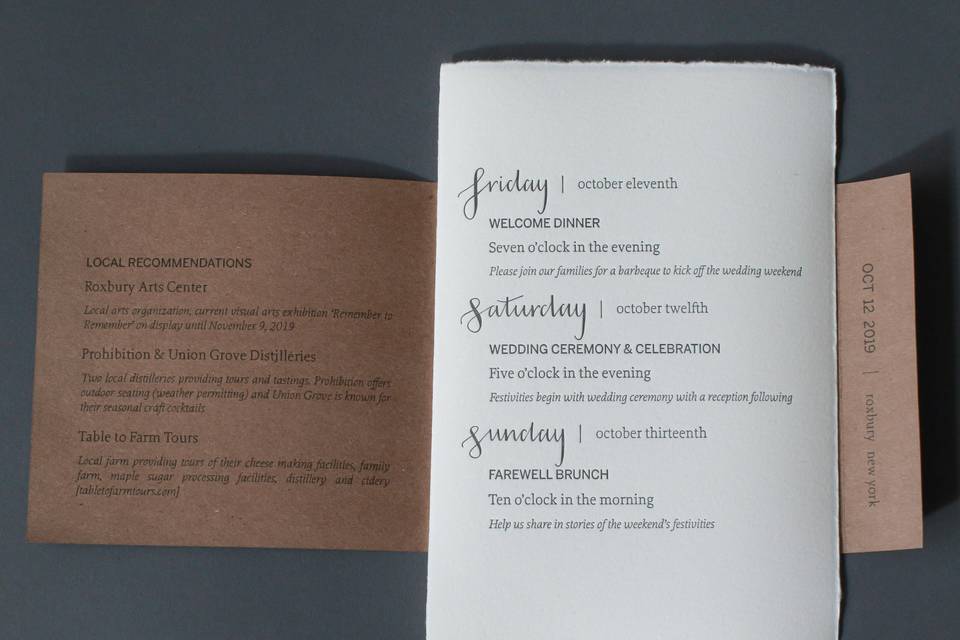 LOCAL RECOMMENDATIONS
Roxbury Arts Center
Local arts organization, current visual arts exhibition 'Remember to
Remember' on display until November 9, 2019
Prohibition & Union Grove Distilleries
Two local distilleries providing tours and tastings. Prohibition offers
outdoor seating (weather permitting) and Union Grove is known for
their seasonal craft cocktails
Table to Farm Tours
Local farm providing tours of their cheese making facilities, family
farm, maple sugar processing facilities, distillery and cidery
[tabletofarmtours.com]
friday | october eleventh
WELCOME DINNER
Seven o'clock in the evening
Please join our families for a barbeque to kick off the wedding weekend
saturday | october twelfth
WEDDING CEREMONY & CELEBRATION
Five o'clock in the evening
Festivities begin with wedding ceremony with a reception following
sunday | october thirteenth
FAREWELL BRUNCH
Ten o'clock in the morning
Help us share in stories of the weekend's festivities
OCT 12 2019 | roxbury new york